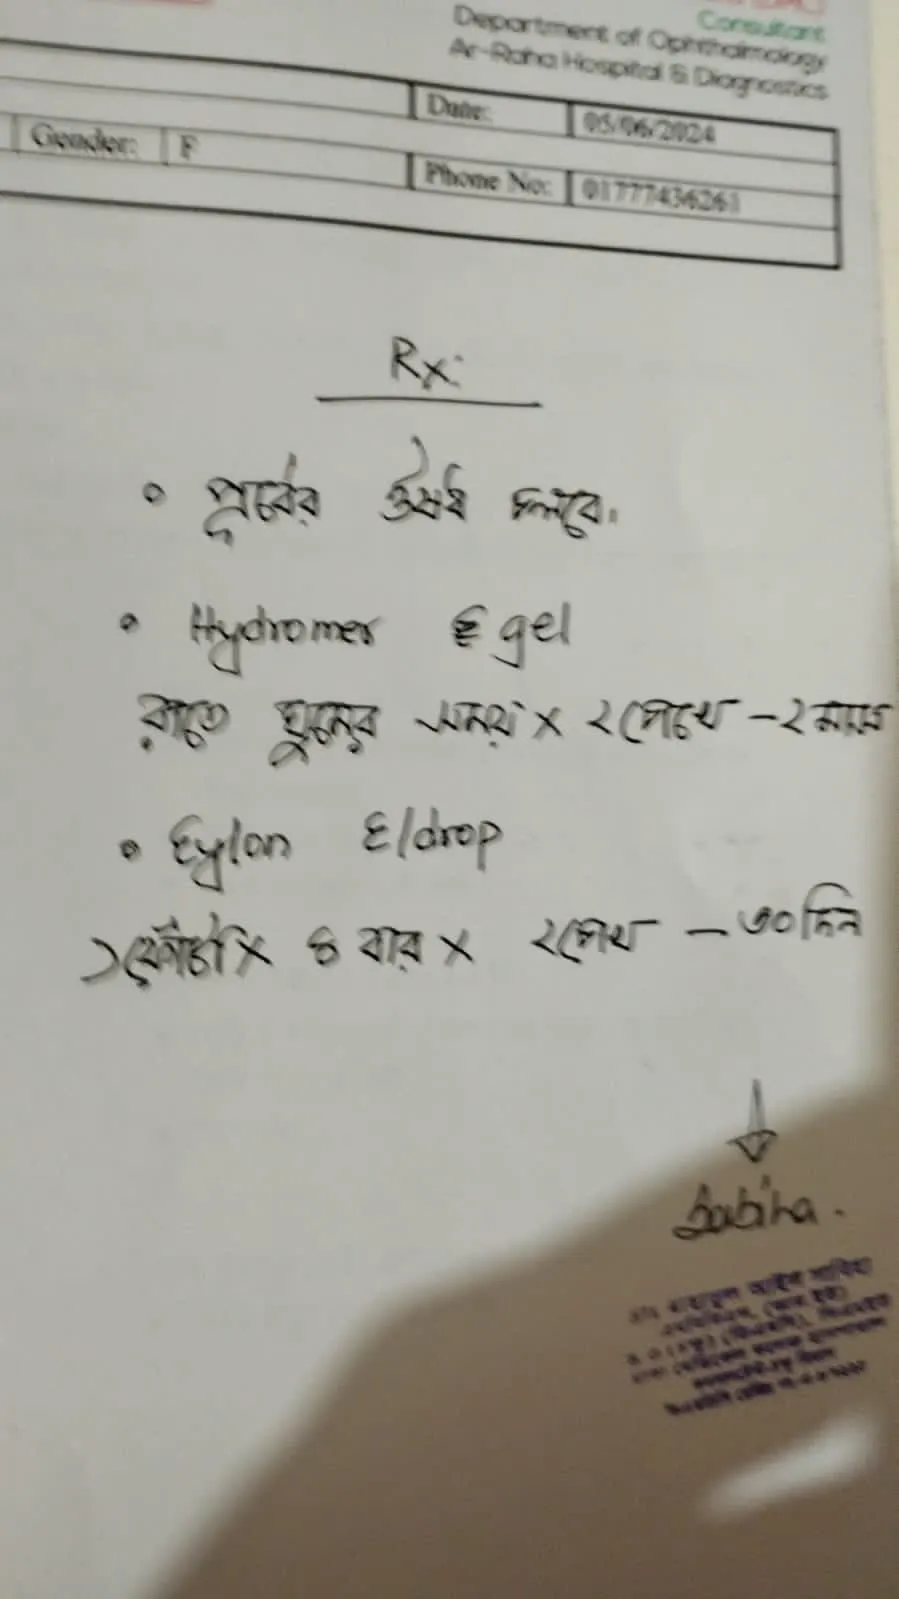 Consultant
Department of Ophthalmology
Ar-Raha Hospital & Diagnostics
Date: 05/06/2024
Gender: F
Phone No: 01777436261
Rx:
পূর্বের ঔষধ চলবে।
Hydromer E gel
রাতে ঘুমের সময় x ২ চোখে - ২ মাস
Eylon E/drop
১ ফোঁটা x ৪ বার x ২ চোখ - ৩০ দিন
Sabiha.